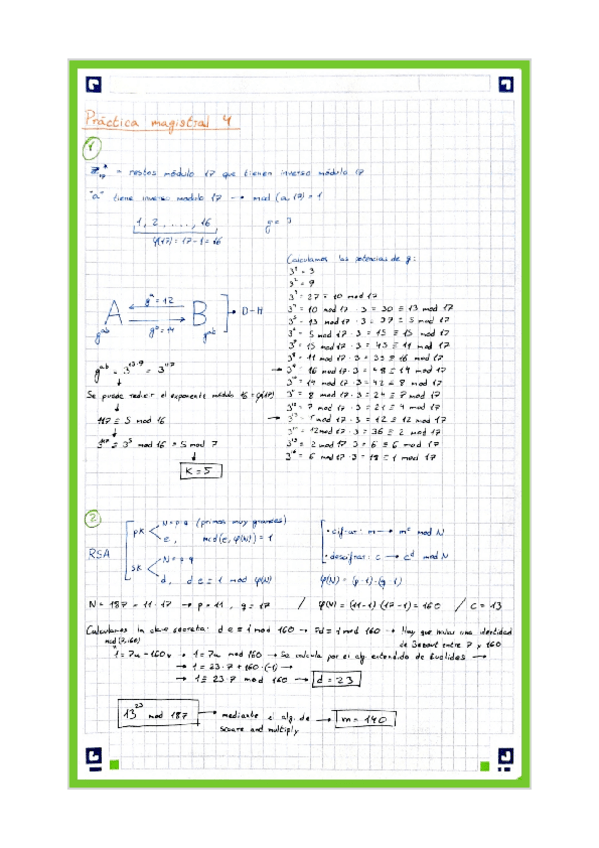 Práctica magistral 4
1
Z*17 = restos módulo 17 que tienen inverso módulo 17
"a" tiene inverso modulo 17 → mcd (a,17) = 1
1, 2, ..., 16 g = 3
φ(17) = 17-1 = 16
Calculamos las potencias de g:
3¹ = 3
3² = 9
3³ = 27 ≡ 10 mod 17
3⁴ = 10 mod 17 · 3 = 30 ≡ 13 mod 17
3⁵ = 13 mod 17 · 3 = 39 ≡ 5 mod 17
3⁶ = 5 mod 17 · 3 = 15 ≡ 15 mod 17
3⁷ = 15 mod 17 · 3 = 45 ≡ 11 mod 17
3⁸ = 11 mod 17 · 3 = 33 ≡ 16 mod 17
→ 3⁹ = 16 mod 17 · 3 = 48 ≡ 14 mod 17
3¹⁰ = 14 mod 17 · 3 = 42 ≡ 8 mod 17
= 8 mod 17 · 3 = 24 ≡ 7 mod 17
3¹² = 7 mod 17 · 3 = 21 ≡ 4 mod 17
→ mod 17 · 3 = 12 ≡ 12 mod 17
= 12 mod 17 · 3 = 36 ≡ 2 mod 17
3¹⁵ = 2 mod 17 · 3 = 6 ≡ 6 mod 17
3¹⁶ = 6 mod 17 · 3 = 18 ≡ 1 mod 17
A B D-H
gᵃ = 12
gᵇ = 14
gᵃᵇ gᵃᵇ
gᵃᵇ = 3¹³·⁹ = 3¹¹⁷
Se puede reducir el exponente módulo 16 = φ(17)
117 ≡ 5 mod 16
3¹¹⁷ ≡ 3⁵ mod 16 = 5 mod
K = 5
2
RSA
PK N = p·q (primos muy grandes)
e, mcd(e, φ(N)) = 1
SK N = p·q
d, d·e ≡ 1 mod φ(N)
· cifrar: m → mᵉ mod N
· descifrar: c → cᵈ mod N
φ(N) = (p-1)·(q-1)
N = 187 = 11·17 → p = 11, q = 17 / φ(N) = (11-1)·(17-1) = 160 / C = 13
Calculamos la clave secreta: d·e ≡ 1 mod 160 → 7d ≡ 1 mod 160 → Hay que hallar una identidad
de Bezout entre 7 y 160
mcd(7,160)
1 = 7u - 160v → 1 = 7u mod 160 → Se calcula por el alg extendido de Euclides →
→ 1 = 23·7 + 160·(-1) →
→ 1 ≡ 23·7 mod 160 → d = 23
13²³ mod 187 → mediante el alg. de → m = 140
square and multiply